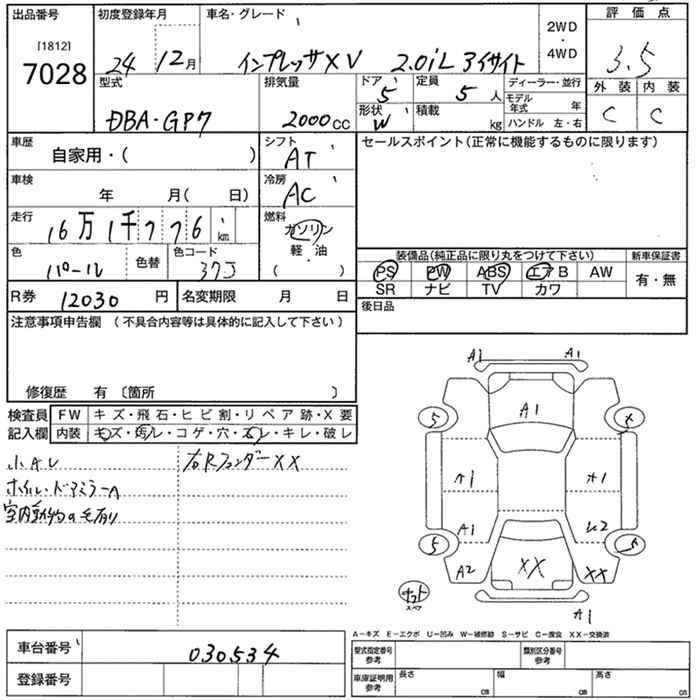 出品番号 初度登録年月 車名・グレード 評価点
[1812]
7028
24 12月 インプレッサXV 2.0iL アイサイト
2WD
・
4WD
3.5
型式 排気量 ドア 定員 ディーラー・並行 外装 内装
DBA-GP7 2000cc 5 5人
形状 積載 モデル年式 年
W kg ハンドル 左・右 C C
車歴 シフト セールスポイント(正常に機能するものに限ります)
自家用・( ) AT
車検 冷房
年 月( 日) AC
走行 燃料
16万1千776 km ガソリン
軽・油
・
( )
色 色替 色コード
パール 37J
装備品(純正品に限り丸をつけて下さい) 新車保証書
PS PW ABS エアB AW 有・無
SR ナビ TV カワ
R券 12030円 名変期限 月 日 後日品
注意事項申告欄 (不具合内容等は具体的に記入して下さい)
修復歴 有 〔箇所 〕
検査員 FW キズ・飛石・ヒビ割・リペア跡・X要
記入欄 内装 キズ・汚レ・コゲ・穴・スレ・キレ・破レ
小AU 右RフェンダーXX
ホイル・ドアミラーA
室内動物の毛有り
A1 A1
A1
5
A1 A1
A1 U2
5
A2 XX XX
スペア
A1
A-キズ E-エクボ U-凹み W-補修跡 S-サビ C-腐食 XX-交換済
車台番号 030534 型式指定番号 参考 類別区分番号 参考
登録番号 車庫証明用 参考 長さ cm 幅 cm 高さ cm